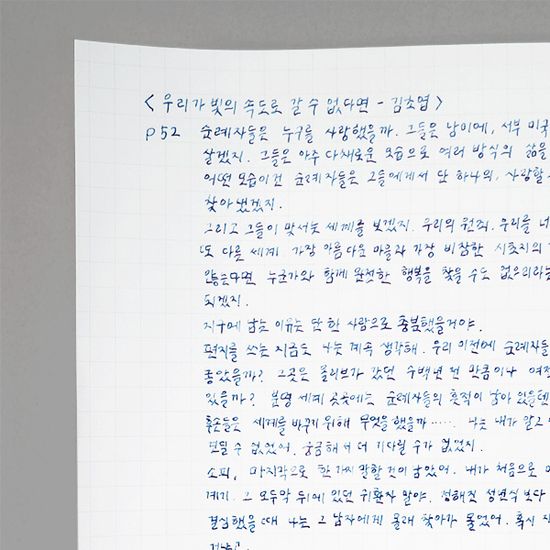 < 우리가 빛의 속도로 갈 수 없다면 - 김초엽 >
P52 순례자들은 누구를 사랑했을까. 그들은 남미에, 서부 미국
살겠지. 그들은 아주 다채로운 모습으로 여러 방식의 삶을
어떤 모습이건 순례자들은 그들에게서 단 하나의, 사랑할
찾아냈겠지.
그리고 그들이 맞서는 세계를 보겠지. 우리의 원죄. 우리를 너
또 다른 세계. 가장 아름다운 마을과 가장 비참한 시초지의
않는다면 누군가와 함께 완전한 행복을 찾을 수도 없으리라는
되겠지.
지구에 남는 이유는 단 한 사람으로 충분했을거야.
편지를 쓰는 지금도 나는 계속 생각해. 우리 이전에 순례자들
좋았을까? 그곳은 올리브가 갔던 수백년 전 만큼이나 여전
있을까? 분명 세계 곳곳에는 순례자들의 흔적이 남아 있을텐
세계를 바꾸기 위해 무엇을 했을까 ..... 나는 내가 알고
견딜 수 없었어. 궁금해서 더 기다릴 수가 없었지.
소피, 마지막으로 한 가지 말할 것이 남았어. 내가 처음으로
계기. 그 오두막 뒤에 있던 귀환자 말야. 정해진 성년식보다
결심했을 때 나는 그 남자에게 몰래 찾아가 물었어. 혹시